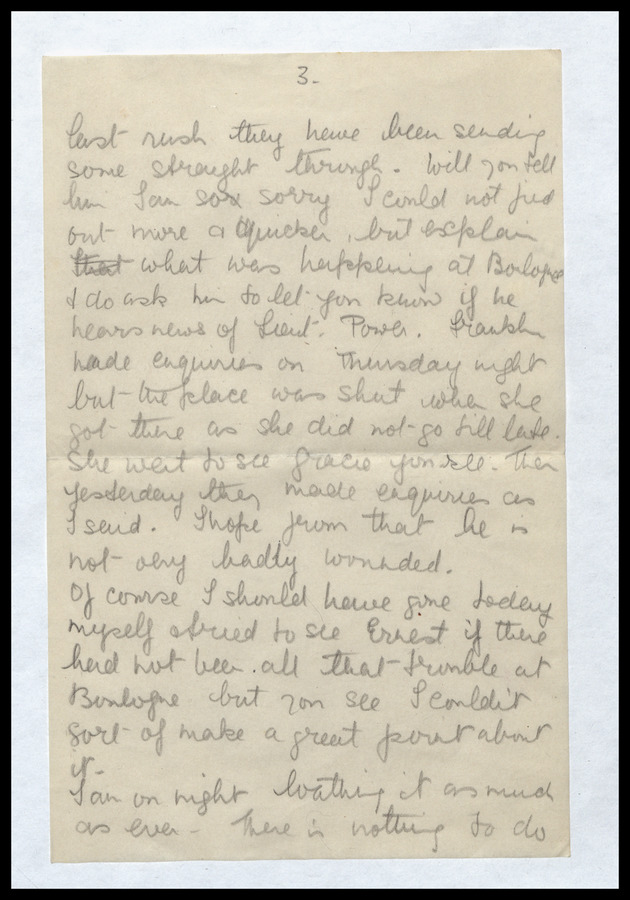 3.
last rush they have been sending
some straight through. Will you tell
him I am so sorry I could not find
out more & quicker, but explain
that what was happening at Boulogne
& do ask him to let you know if he
hears news of Lieut. Power. Franklin
made enquiries on Thursday night
but the place was shut when she
got there as she did not go till late.
She went to see Gracie you see. Then
yesterday they made enquiries as
I said. I hope from that he is
not very badly wounded.
Of course I should have gone today
myself & tried to see Ernest if there
had not been all that trouble at
Boulogne but you see I couldn't
sort of make a great point about
it.
I am on night loathing it as much
as ever - There is nothing to do